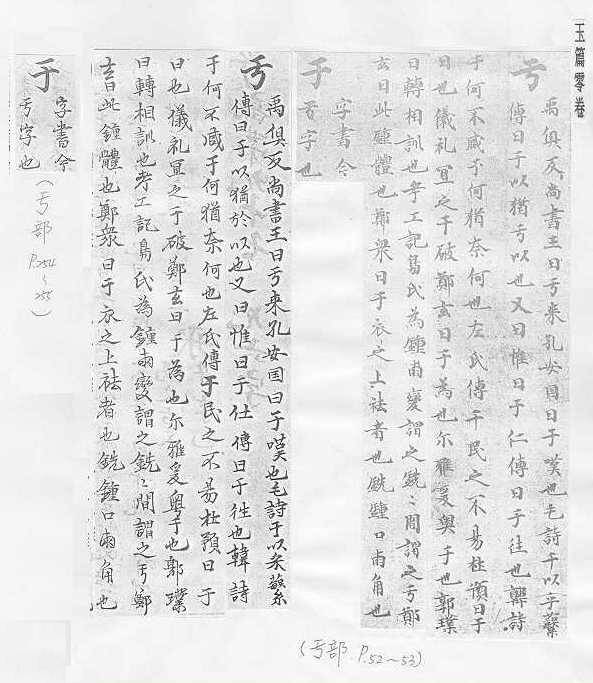 玉篇零卷
亏
禹俱反尚書王曰亏来孔安国曰于嘆也毛詩于以乎蘩
傳曰于以猶亏以也又曰惟曰于仁傳曰于往也韓詩
于何不臧于何猶奈何也左氏傳于民之不易杜預曰于
曰也儀礼冝之于破鄭玄曰于為也尔雅爰與于也郭璞
曰轉相訓也考工記鳬氏為鍾兩欒謂之銑〻間謂之亏鄭
玄曰此鍾體也鄭衆曰于衣之上袪者也銑鍾口兩角也
于
字書今
亏字也
(亏部 P.52~53)
亏
禹俱反尚書王曰亏来孔安国曰于嘆也毛詩于以采蘩
傳曰于以猶於以也又曰惟曰于仕傳曰于往也韓詩
于何不臧于何猶奈何也左氏傳于民之不易杜預曰于
曰也儀礼冝之于破鄭玄曰于為也尔雅爰粤于也郭璞
曰轉相訓也考工記鳬氏為鍾兩欒謂之銑〻間謂之亏鄭
言曰此鍾體也鄭衆曰于衣之上袪者也銑鍾口兩角也
于
字書今
亏字也
(亏部 P.254~255)